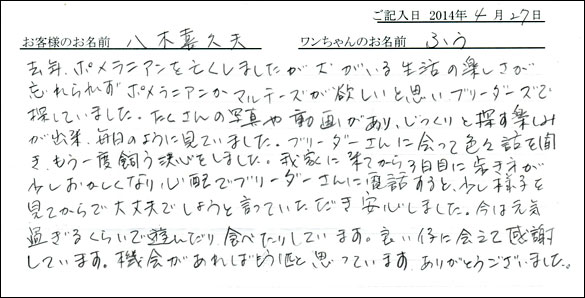 ご記入日 2014年 4 月 27 日
お客様のお名前 八木喜久夫 ワンちゃんのお名前 ふう
去年、ポメラニアンを亡くしましたが犬がいる生活の楽しさが
忘れられずポメラニアンかマルチーズが欲しいと思いブリーダーズで
探していました。たくさんの写真や動画があり、じっくりと探す楽しみ
が出来、毎日のように見ていました。ブリーダーさんに会って色々話を聞
き、もう一度飼う決心をしました。我家に来てから3日目に歩き方が
少しおかしくなり心配でブリーダーさんに電話すると、少し様子を
見てからで大丈夫でしょうと言っていただき安心しました。今は元気
過ぎるくらいで遊んだり食べたりしています。良い仔に会えて感謝
しています。機会があればもう1匹と思っています ありがとうございました。